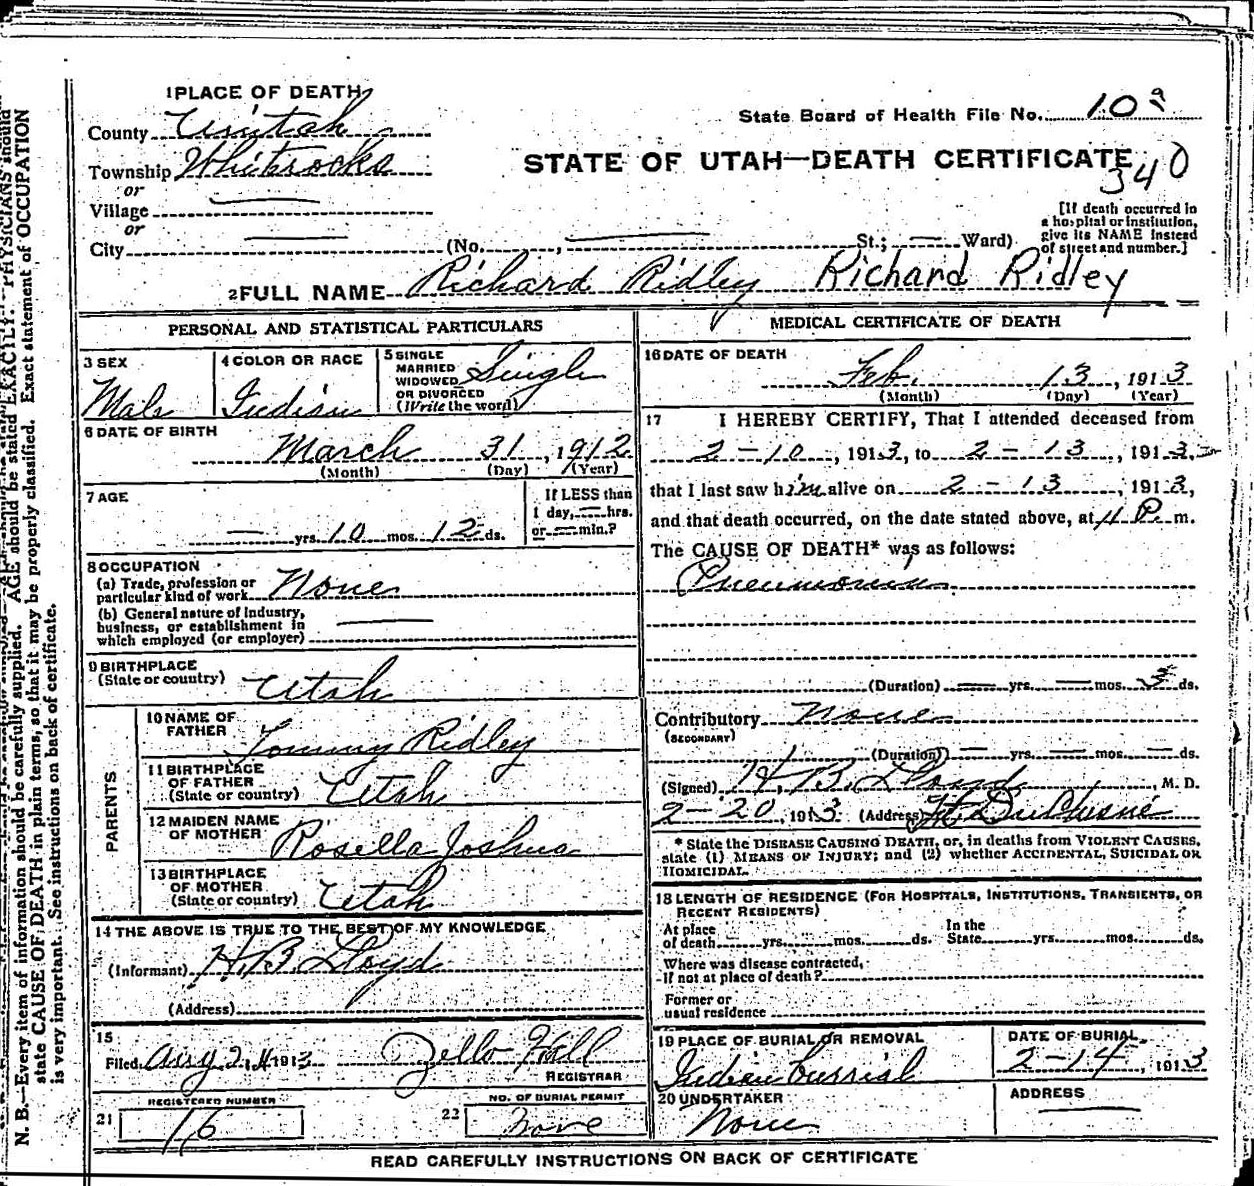 1 PLACE OF DEATH
County Uintah
Township Whiterocks
or
Village
or
City (No. , St.; Ward)
State Board of Health File No. 10a
STATE OF UTAH—DEATH CERTIFICATE
340
[If death occurred in
a hospital or institution,
give its NAME instead
of street and number.]
2 FULL NAME Richard Ridley Richard Ridley
PERSONAL AND STATISTICAL PARTICULARS
3 SEX
Male
4 COLOR OR RACE
Indian
5 SINGLE
MARRIED
WIDOWED
OR DIVORCED
(Write the word)
Single
6 DATE OF BIRTH
March 31, 1912
(Month) (Day) (Year)
7 AGE
— yrs. 10 mos. 12 ds.
If LESS than
1 day, — hrs.
or — min.?
8 OCCUPATION
(a) Trade, profession or
particular kind of work None
(b) General nature of industry,
business, or establishment in
which employed (or employer)
9 BIRTHPLACE
(State or country) Utah
PARENTS
10 NAME OF
FATHER Tommy Ridley
11 BIRTHPLACE
OF FATHER
(State or country) Utah
12 MAIDEN NAME
OF MOTHER Rosella Joshua
13 BIRTHPLACE
OF MOTHER
(State or country) Utah
14 THE ABOVE IS TRUE TO THE BEST OF MY KNOWLEDGE
(Informant) H. B. Lloyd
(Address)
15
Filed Aug 21 1913 Zello Hall
REGISTRAR
21 REGISTERED NUMBER
16
22 NO. OF BURIAL PERMIT
None
MEDICAL CERTIFICATE OF DEATH
16 DATE OF DEATH
Feb. 13, 1913
(Month) (Day) (Year)
17 I HEREBY CERTIFY, That I attended deceased from
2-10, 1913, to 2-13, 1913,
that I last saw him alive on 2-13, 1913,
and that death occurred, on the date stated above, at 11 P. m.
The CAUSE OF DEATH* was as follows:
Pneumonia
(Duration) — yrs. — mos. 3 ds.
Contributory None
(SECONDARY)
(Duration) — yrs. — mos. — ds.
(Signed) H. B. Lloyd, M. D.
2-20, 1913 (Address) Ft. Duchesne
* State the DISEASE CAUSING DEATH, or, in deaths from VIOLENT CAUSES,
state (1) MEANS OF INJURY; and (2) whether ACCIDENTAL, SUICIDAL OR
HOMICIDAL.
18 LENGTH OF RESIDENCE (FOR HOSPITALS, INSTITUTIONS, TRANSIENTS, OR
RECENT RESIDENTS)
At place
of death yrs. mos. ds.
In the
State yrs. mos. ds.
Where was disease contracted,
if not at place of death?
Former or
usual residence
19 PLACE OF BURIAL OR REMOVAL
Indian burrial
DATE OF BURIAL
2-14, 1913
20 UNDERTAKER
None
ADDRESS
READ CAREFULLY INSTRUCTIONS ON BACK OF CERTIFICATE
N. B.—Every item of information should be carefully supplied. AGE should be stated EXACTLY. PHYSICIANS should
state CAUSE OF DEATH in plain terms, so that it may be properly classified. Exact statement of OCCUPATION
is very important. See instructions on back of certificate.